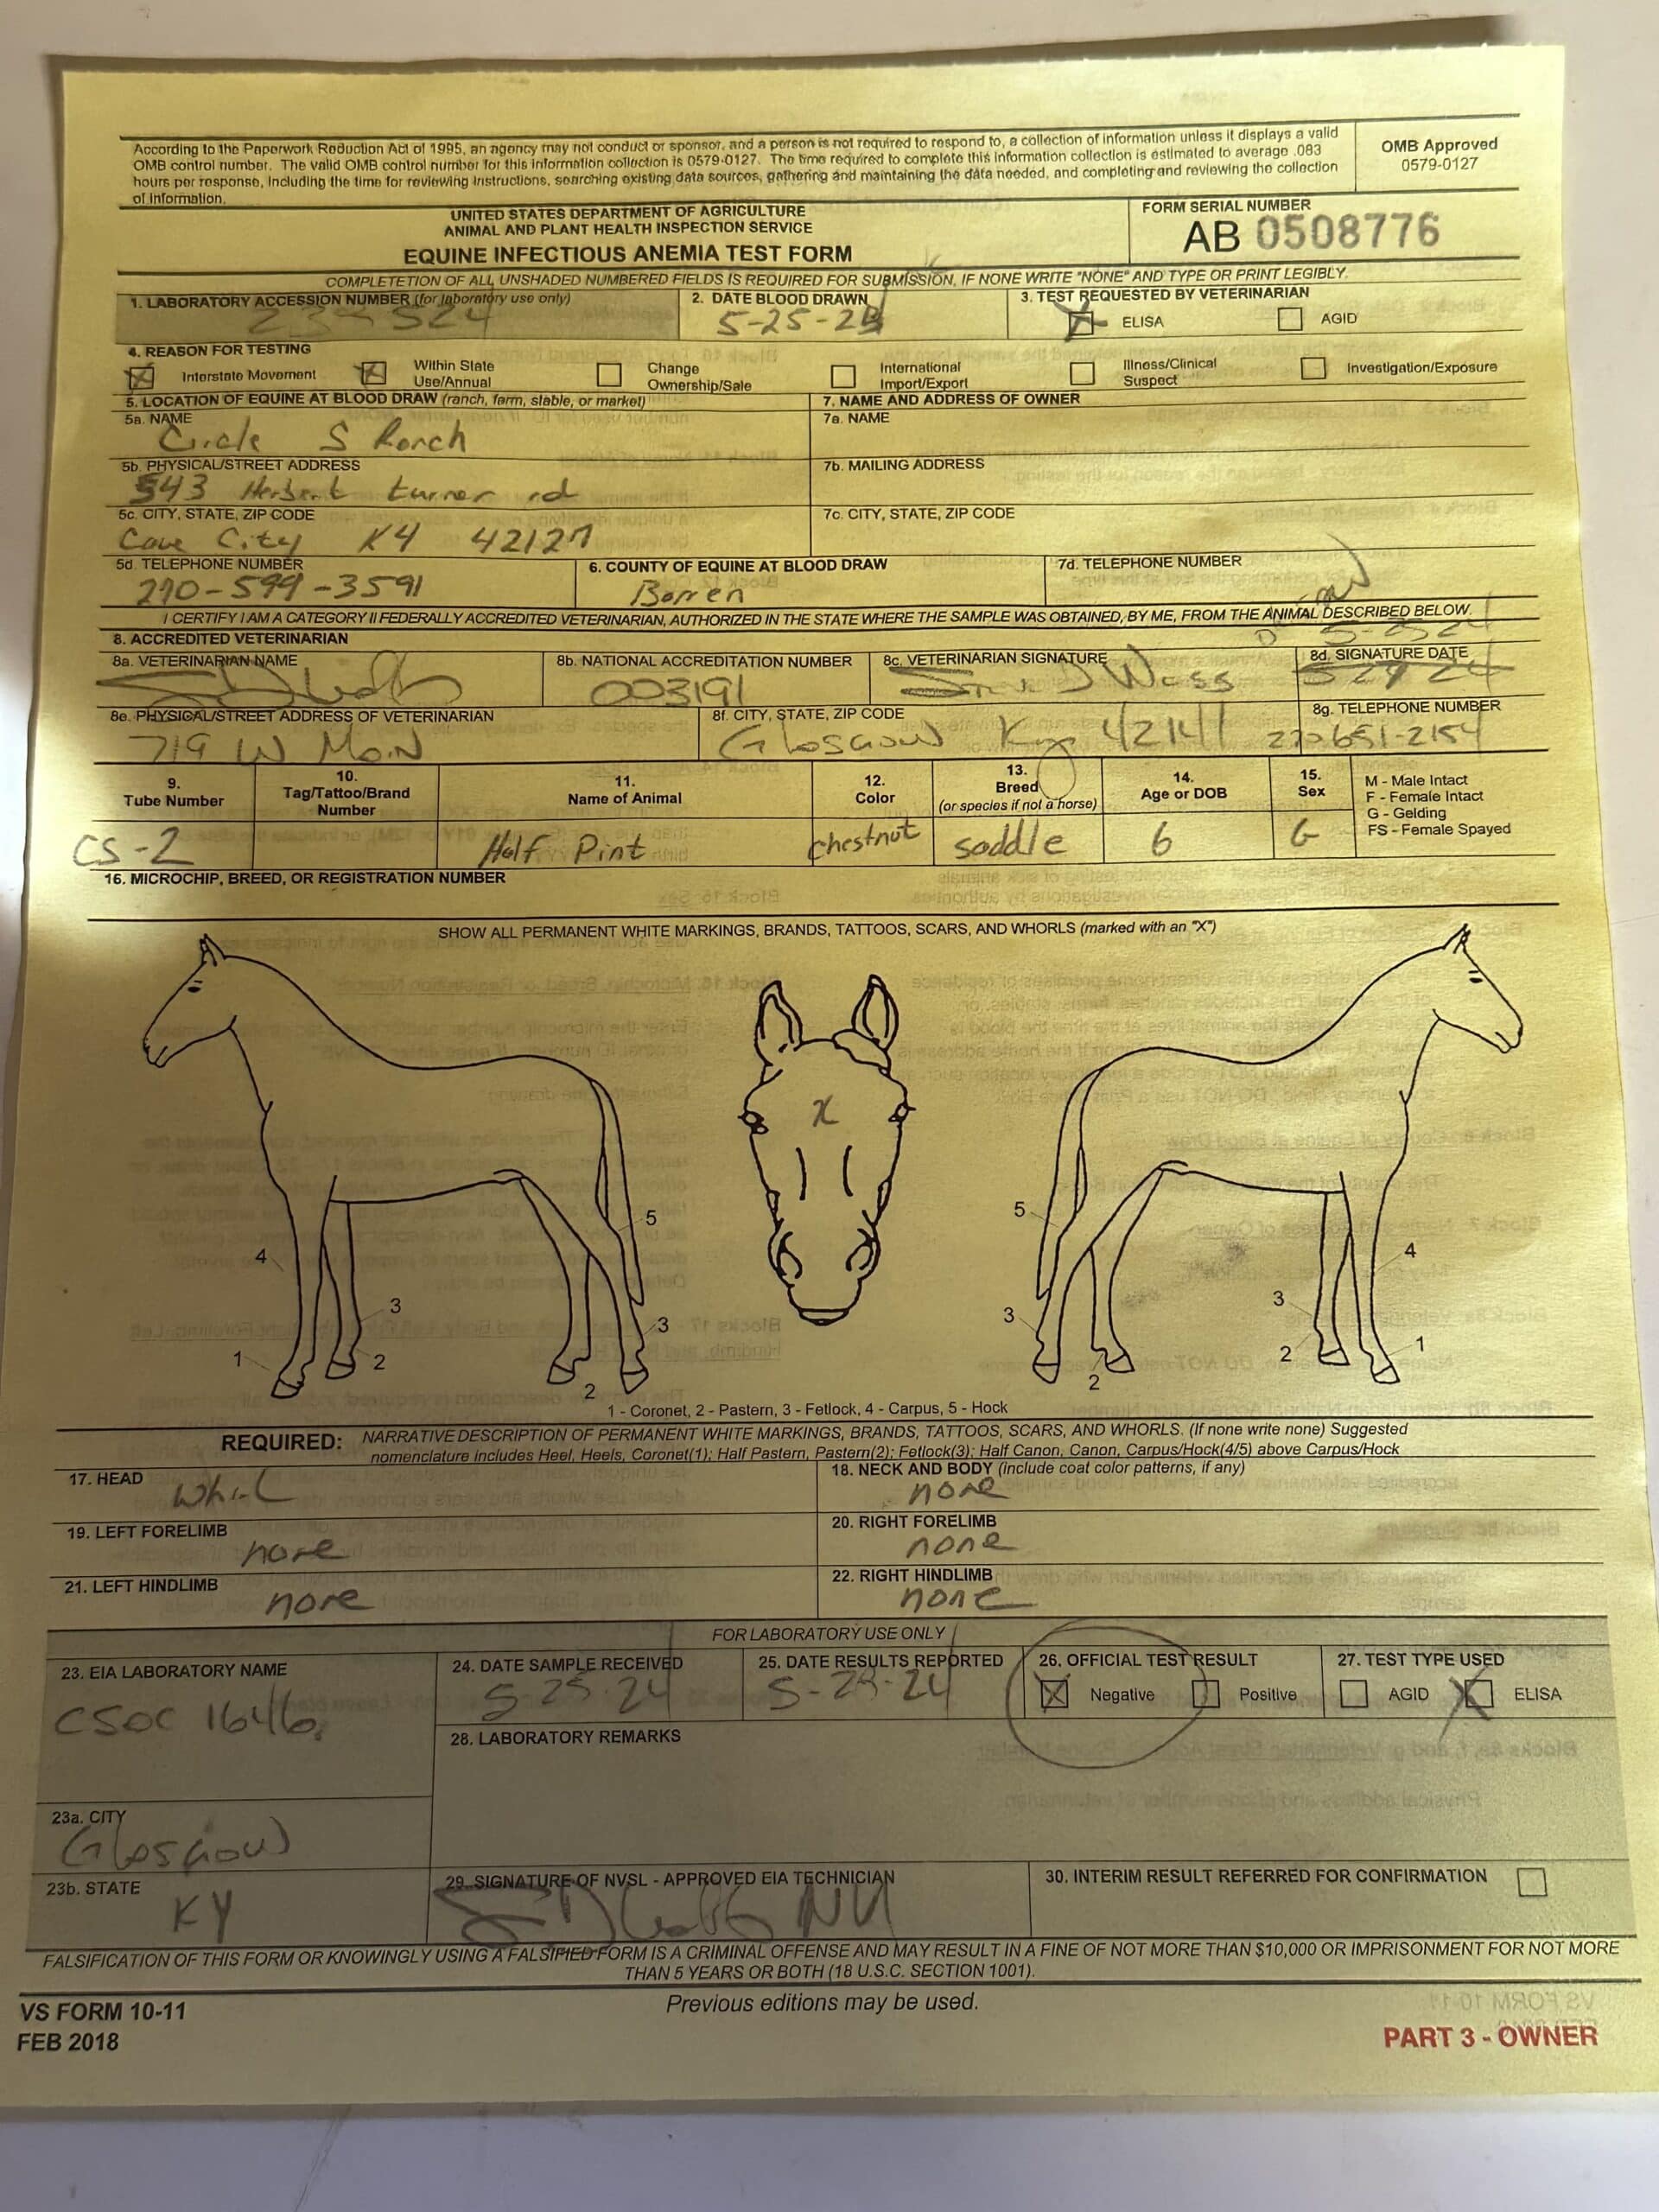 According to the Paperwork Reduction Act of 1995, an agency may not conduct or sponsor, and a person is not required to respond to, a collection of information unless it displays a valid
OMB control number. The valid OMB control number for this information collection is 0579-0127. The time required to complete this information collection is estimated to average .083
hours per response, including the time for reviewing instructions, searching existing data sources, gathering and maintaining the data needed, and completing and reviewing the collection
of information.
OMB Approved
0579-0127
UNITED STATES DEPARTMENT OF AGRICULTURE
ANIMAL AND PLANT HEALTH INSPECTION SERVICE
EQUINE INFECTIOUS ANEMIA TEST FORM
FORM SERIAL NUMBER
AB 0508776
COMPLETETION OF ALL UNSHADED NUMBERED FIELDS IS REQUIRED FOR SUBMISSION, IF NONE WRITE "NONE" AND TYPE OR PRINT LEGIBLY.
1. LABORATORY ACCESSION NUMBER (for laboratory use only)
2. DATE BLOOD DRAWN
5-25-
3. TEST REQUESTED BY VETERINARIAN
X ELISA AGID
4. REASON FOR TESTING
X Interstate Movement
X Within State Use/Annual
Change Ownership/Sale
International Import/Export
Illness/Clinical Suspect
Investigation/Exposure
5. LOCATION OF EQUINE AT BLOOD DRAW (ranch, farm, stable, or market)
7. NAME AND ADDRESS OF OWNER
5a. NAME
Circle S Ranch
7a. NAME
5b. PHYSICAL/STREET ADDRESS
543 Herbert turner rd
7b. MAILING ADDRESS
5c. CITY, STATE, ZIP CODE
Cave City KY 42127
7c. CITY, STATE, ZIP CODE
5d. TELEPHONE NUMBER
270-599-3591
6. COUNTY OF EQUINE AT BLOOD DRAW
Barren
7d. TELEPHONE NUMBER
I CERTIFY I AM A CATEGORY II FEDERALLY ACCREDITED VETERINARIAN, AUTHORIZED IN THE STATE WHERE THE SAMPLE WAS OBTAINED, BY ME, FROM THE ANIMAL DESCRIBED BELOW.
8. ACCREDITED VETERINARIAN
8a. VETERINARIAN NAME
8b. NATIONAL ACCREDITATION NUMBER
003191
8c. VETERINARIAN SIGNATURE
8d. SIGNATURE DATE
8e. PHYSICAL/STREET ADDRESS OF VETERINARIAN
719 W Main
8f. CITY, STATE, ZIP CODE
Glasgow Ky 42141
8g. TELEPHONE NUMBER
270651-2154
9. Tube Number
10. Tag/Tattoo/Brand Number
11. Name of Animal
12. Color
13. Breed (or species if not a horse)
14. Age or DOB
15. Sex
M - Male Intact
F - Female Intact
G - Gelding
FS - Female Spayed
CS-2 Half Pint chestnut saddle 6 G
16. MICROCHIP, BREED, OR REGISTRATION NUMBER
SHOW ALL PERMANENT WHITE MARKINGS, BRANDS, TATTOOS, SCARS, AND WHORLS (marked with an "X")
X
5 5
4 4
3 3 3 3
1 2 2 2 2 1
1 - Coronet, 2 - Pastern, 3 - Fetlock, 4 - Carpus, 5 - Hock
REQUIRED: NARRATIVE DESCRIPTION OF PERMANENT WHITE MARKINGS, BRANDS, TATTOOS, SCARS, AND WHORLS. (If none write none) Suggested
nomenclature includes Heel, Heels, Coronet(1); Half Pastern, Pastern(2); Fetlock(3); Half Canon, Canon, Carpus/Hock(4/5) above Carpus/Hock
17. HEAD
whirl
18. NECK AND BODY (include coat color patterns, if any)
none
19. LEFT FORELIMB
none
20. RIGHT FORELIMB
none
21. LEFT HINDLIMB
none
22. RIGHT HINDLIMB
none
FOR LABORATORY USE ONLY
23. EIA LABORATORY NAME
24. DATE SAMPLE RECEIVED
5-25-24
25. DATE RESULTS REPORTED
26. OFFICIAL TEST RESULT
X Negative Positive
27. TEST TYPE USED
AGID X ELISA
28. LABORATORY REMARKS
23a. CITY
Glasgow
23b. STATE
KY
29. SIGNATURE OF NVSL - APPROVED EIA TECHNICIAN
30. INTERIM RESULT REFERRED FOR CONFIRMATION
FALSIFICATION OF THIS FORM OR KNOWINGLY USING A FALSIFIED FORM IS A CRIMINAL OFFENSE AND MAY RESULT IN A FINE OF NOT MORE THAN $10,000 OR IMPRISONMENT FOR NOT MORE
THAN 5 YEARS OR BOTH (18 U.S.C. SECTION 1001).
VS FORM 10-11
FEB 2018
Previous editions may be used.
PART 3 - OWNER